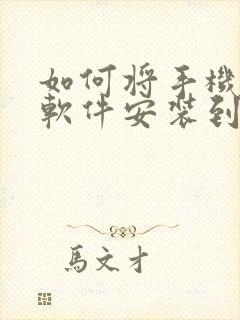 如何将手機
軟件安装到
馬文才